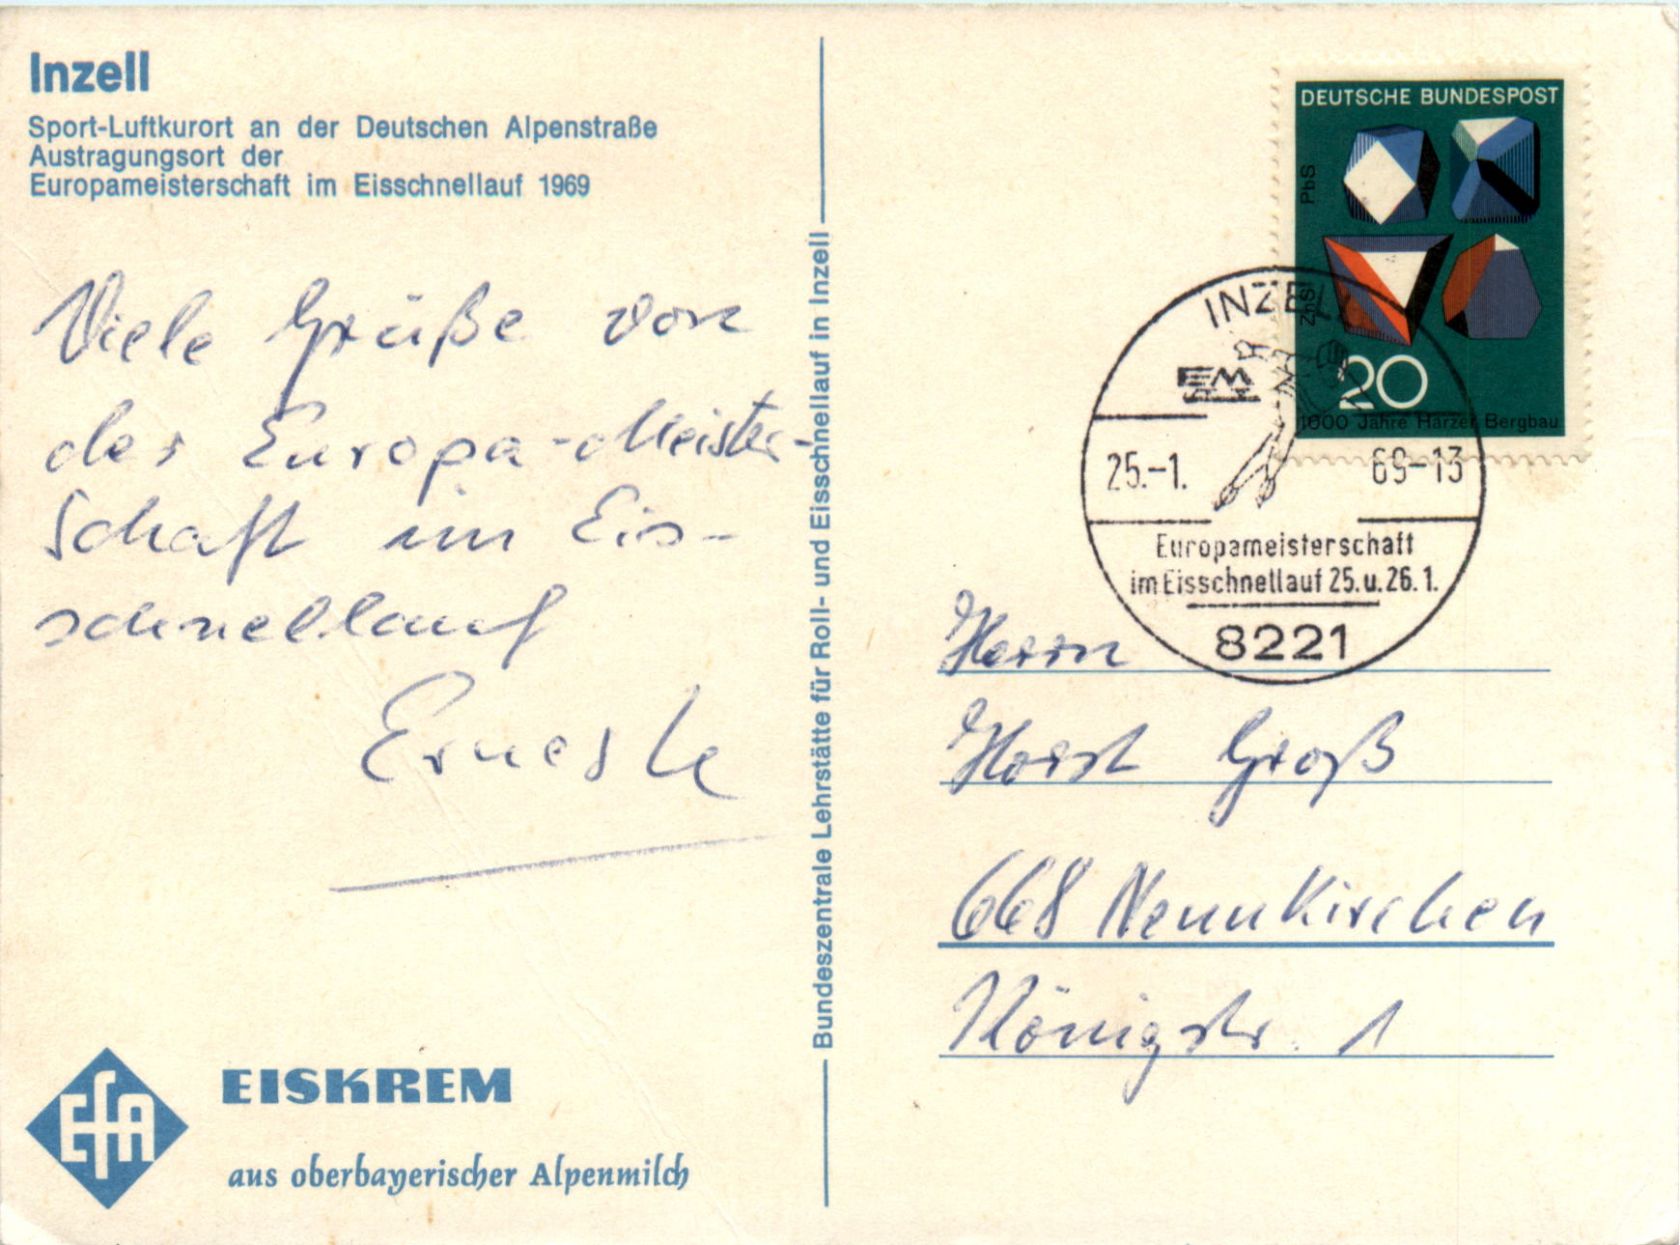 Inzell
Sport-Luftkurort an der Deutschen Alpenstraße
Austragungsort der
Europameisterschaft im Eisschnellauf 1969
Viele Grüße von
der Europa-Meister-
schaft im Eis-
schnellauf
EFA
EISKREM
aus oberbayerischer Alpenmilch
Bundeszentrale Lehrstätte für Roll- und Eisschnellauf in Inzell
DEUTSCHE BUNDESPOST
PbS
ZnS
20
1000 Jahre Harzer Bergbau
INZELL
EM
25.-1. 69-13
Europameisterschaft
im Eisschnellauf 25. u. 26. 1.
8221
Herrn
Horst Groß
668 Neunkirchen
Königstr. 1